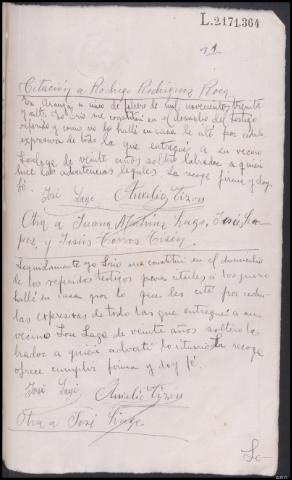 L.2171.364
11
Citación a Rodrigo Rodriguez Roca
En Aranga a uno de febrero de mil novecientos treinta
y ocho. Yo Srio me constituí en el domicilio del testigo
referido y como no lo hallé en casa le cité por cédula
expresiva de todo la que entregué a su vecino
José Lage de veinte años soltero labrador a quien
hice las advertencias legales. La recoge firma y doy
fé.
José Lage Aurelio
Otra a Juana Lago, José
y Jesús
Seguidamente yo Srio me constituí en el domicilio
de los referidos testigos para citarles a los que no
hallé en casa por lo que les cité por cédu-
las expresivas de todo las que entregué a su
vecino José Lage de veinte años soltero la-
brador a quien advertí lo . La recoge
ofrece cumplir firma y doy fé.
José Lage Aurelio
Otra a José Lage